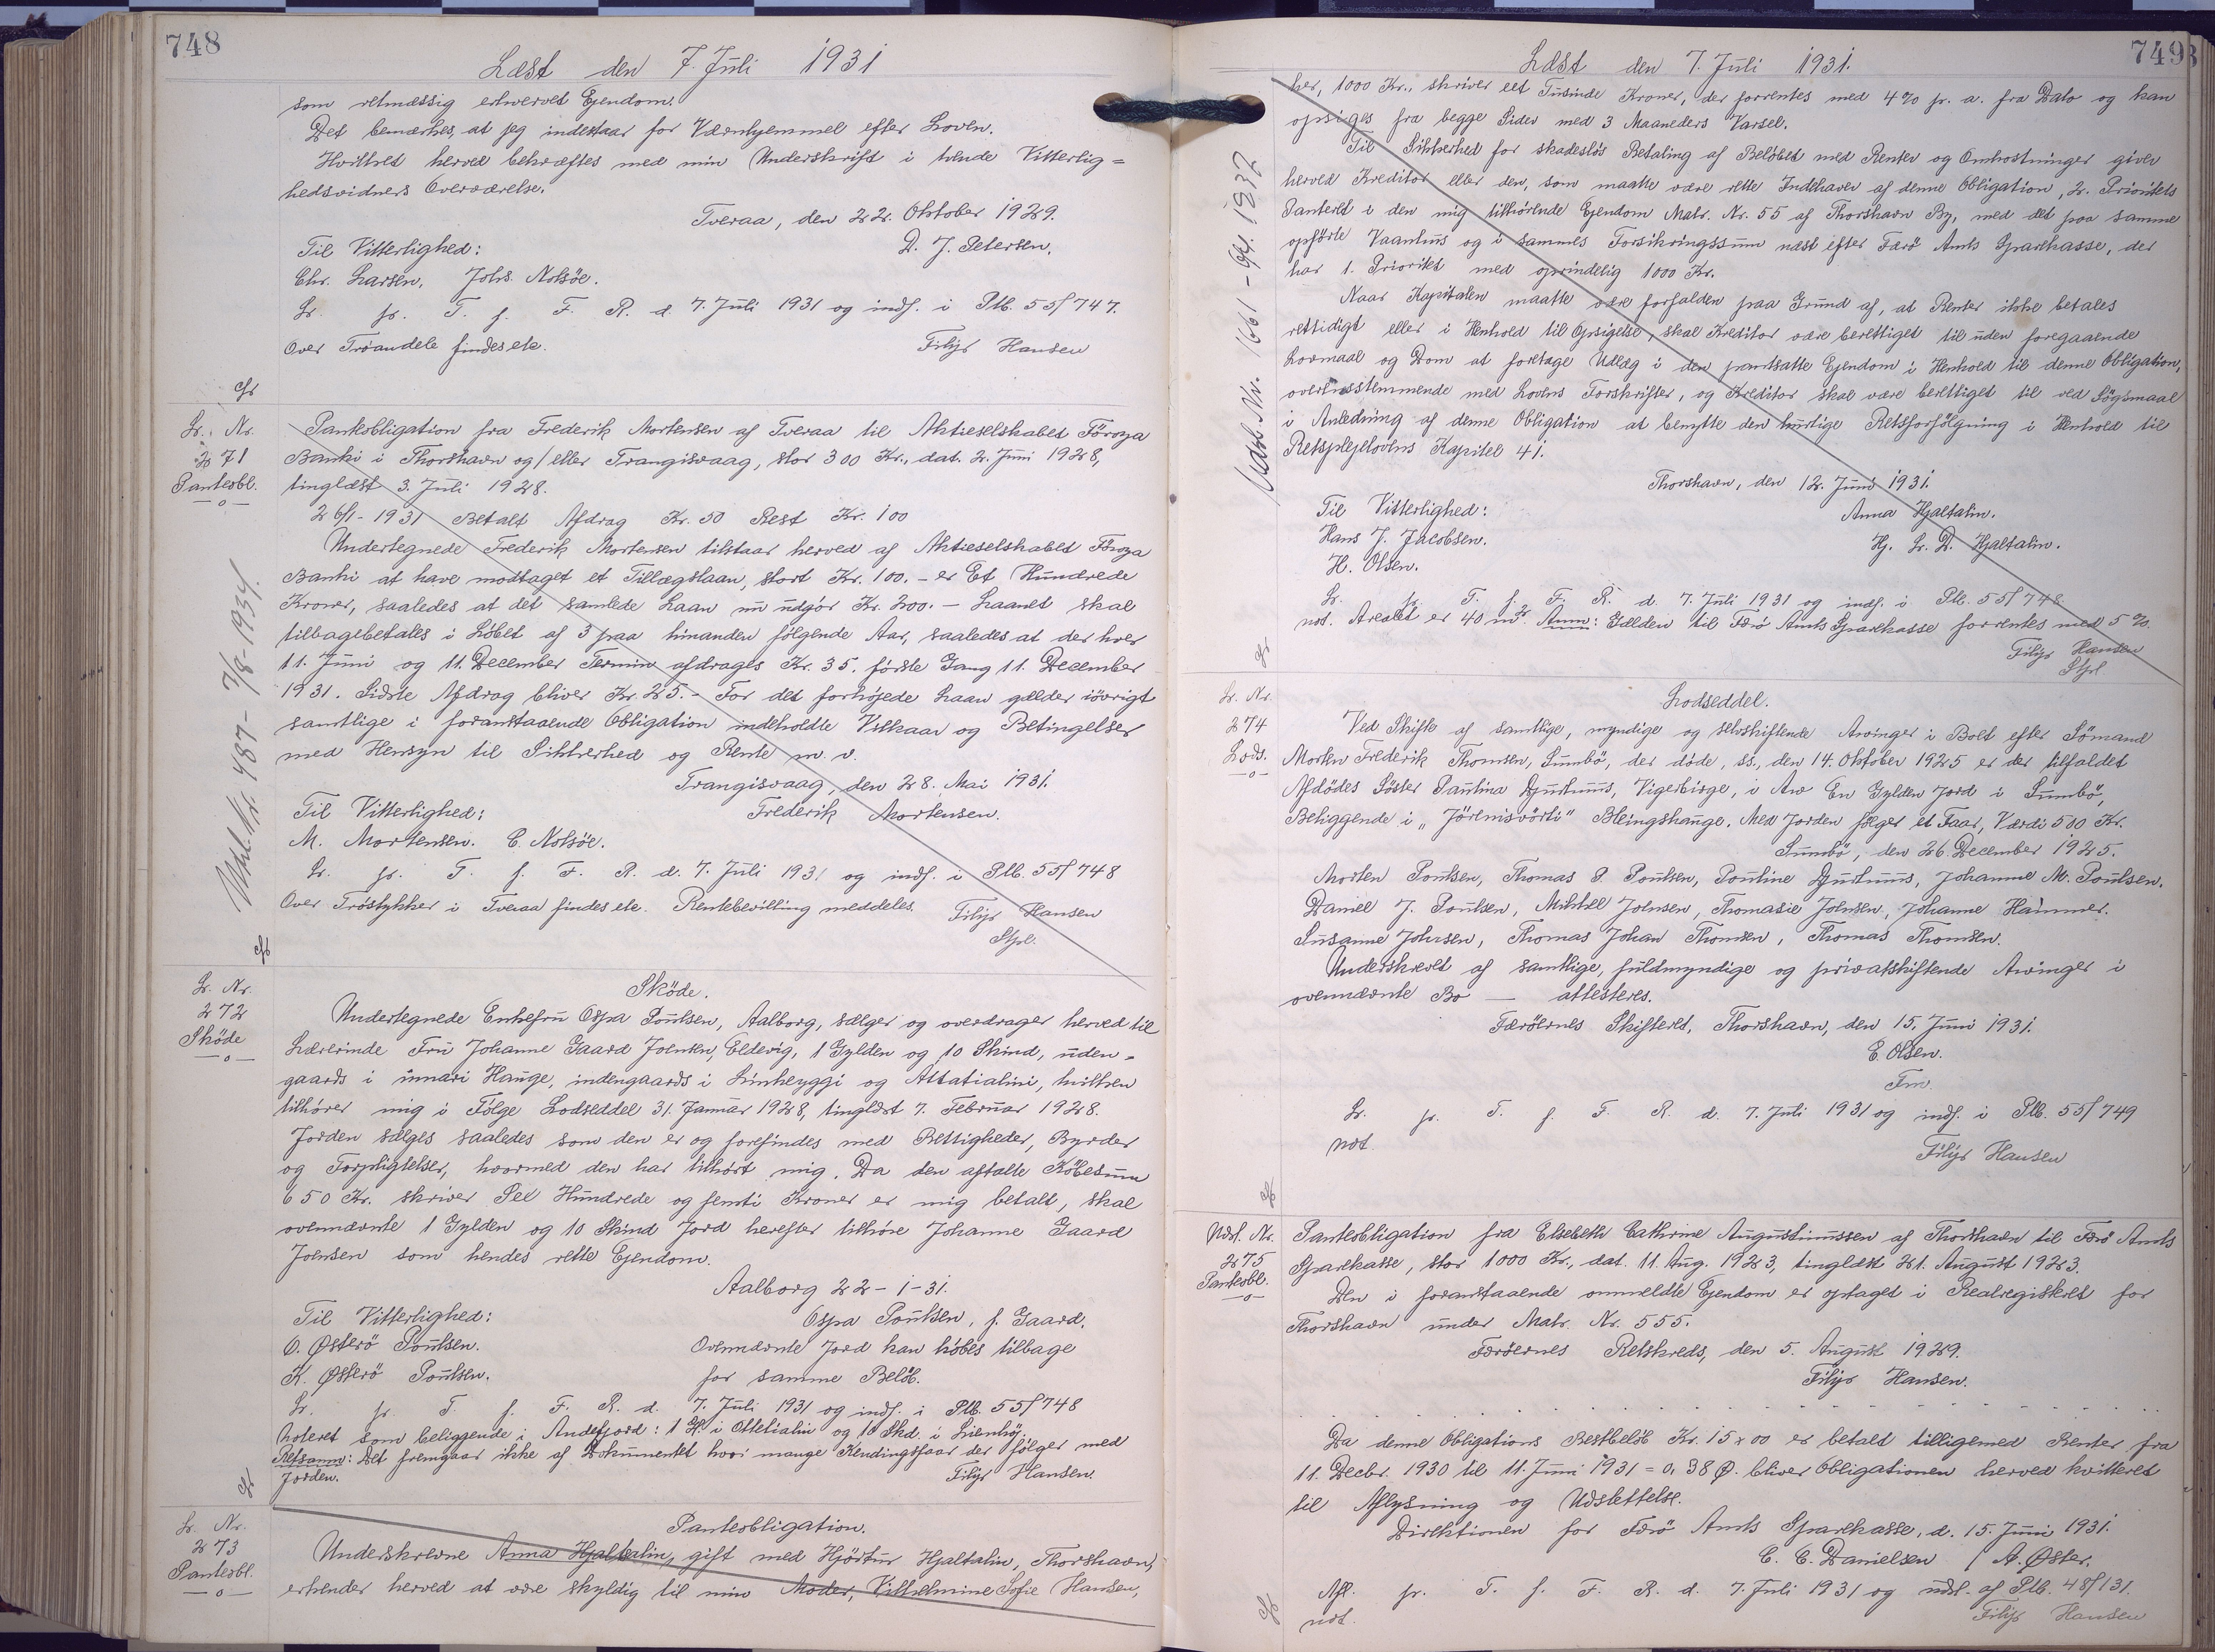 748
Læst den 7. Juli 1931
som retmæssig erhvervet Ejendom.
Det bemærkes, at jeg indestaar for Værnhjemmel efter Loven.
Hvilket herved bekræftes med min Underskrift i tvende Vitterlig=
hedsvidners Overværelse.
Tveraa, den 22. Oktober 1929.
Til Vitterlighed: D. J. Petersen.
Chr. Larsen, Johs. Nolsøe.
Lr. pr. T. f. F. R. d. 7. Juli 1931 og indf. i Ptb. 55/747.
Over Trøandele findes ete. Filip Hansen
Lr. Nr.
271
Panteobl.
Panteobligation fra Frederik Mortensen af Tveraa til Aktieselskabet Föroya
Banki i Thorshavn og/eller Trangisvaag, stor 300 Kr., dat. 2. Juni 1928,
tinglæst 3. Juli 1928.
26/1-1931 Betalt Afdrag Kr. 50 Rest Kr. 100
Undertegnede Frederik Mortensen tilstaar herved af Aktieselskabet Föroya
Banki at have modtaget et Tillægslaan, stort Kr. 100.- er Et Hundrede
Kroner, saaledes at det samlede Laan nu udgör Kr. 200.- Laanet skal
tilbagebetales i Löbet af 3 paa hinanden følgende Aar, saaledes at der hver
11. Juni og 11. December Termin afdrages Kr. 35. første Gang 11. December
1931. Sidste Afdrag bliver Kr. 25.- For det forhøjede Laan gælder iövrigt
samtlige i foranstaaende Obligation indeholdte Vilkaar og Betingelser
med Hensyn til Sikkerhed og Rente m. v.
Trangisvaag, den 28. Mai 1931.
Til Vitterlighed: Frederik Mortensen.
M. Mortensen. C. Nolsöe.
Lr. pr. T. f. F. R. d. 7. Juli 1931 og indf. i Ptb. 55/748
Over Tröstykker i Tveraa findes ete. Rentebevilling meddeles. Filip Hansen
Stpl.
Udsl. Nr. 487 - 7/8-1934.
Lr. Nr.
272
Sköde
Sköde.
Undertegnede Enkefru Ospa Poulsen, Aalborg, sælger og overdrager herved til
Lærerinde Fru Johanne Gaard Joensen, Eldevig, 1 Gylden og 10 Skind, uden-
gaards i innari Hauge, indengaards i Linheyggi og Attatialini, hvilken
tilhører mig i Følge Lodseddel 31. Januar 1928, tinglæst 7. Februar 1928.
Jorden sælges saaledes som den er og forefindes med Rettigheder, Byrder
og Forpligtelser, hvormed den har tilhørt mig. Da den aftalte Købesum
650 Kr. skriver Sex Hundrede og femti Kroner er mig betalt, skal
ovennævnte 1 Gylden og 10 Skind Jord herefter tilhøre Johanne Gaard
Joensen som hendes rette Ejendom.
Aalborg 22-1-31.
Til Vitterlighed: Ospa Poulsen, f. Gaard.
O. Østerö Poulsen. Ovennævnte Jord kan købes tilbage
K. Østerö Poulsen. for samme Beløb.
Lr. pr. T. f. F. R. d. 7. Juli 1931 og indf. i Ptb. 55/748
Noteret som beliggende i Andefjord: 1 Gl. i Ottetialin og 10 Skd. i Lienhöj.
Retsanm: Det fremgaar ikke af Dokumentet hvor mange Kendingsfaar der følger med
Jorden. Filip Hansen.
Lr. Nr.
273
Panteobl.
Panteobligation.
Underskrevne Anna Hjaltalin, gift med Hjørtur Hjaltalin, Thorshavn,
erkender herved at være skyldig til min Moder, Vilhelmine Sofie Hansen,
749
Læst den 7. Juli 1931.
her, 1000 Kr., skriver eet Tusinde Kroner, der forrentes med 4% p. a. fra Dato og kan
opsiges fra begge Sider med 3 Maaneders Varsel.
Til Sikkerhed for skadeslös Betaling af Belöbet med Renter og Omkostninger giver
herved Kreditor eller den, som maatte være rette Indehaver af denne Obligation, 2. Prioritets
Panteret i den mig tilhørende Ejendom Matr. Nr. 55 af Thorshavn By, med det paa samme
opførte Vaanhus og i sammes Forsikringssum næst efter Færö Amts Sparekasse, der
har 1. Prioritet med oprindelig 1000 Kr.
Naar Kapitalen maatte være forfalden paa Grund af, at Renter ikke betales
rettidigt eller i Henhold til Opsigelse, skal Kreditor være berettiget til uden foregaaende
Lovmaal og Dom at foretage Udlæg i den pantsatte Ejendom i Henhold til denne Obligation,
overensstemmende med Lovens Forskrifter, og Kreditor skal være berettiget til ved Sögsmaal
i Anledning af denne Obligation at benytte den hurtige Retsforfölgning i Henhold til
Retsplejelovens Kapitel 41.
Thorshavn, den 12. Juni 1931.
Til Vitterlighed: Anna Hjaltalin.
Hans J. Jacobsen. Hj. Lr. D. Hjaltalin.
H. Olsen.
Lr. pr. T. f. F. R. d. 7. Juli 1931 og indf. i Ptb. 55/748
not. Arealet er 40 m². Anm: Gælden til Færö Amts Sparekasse forrentes med 5%.
Filip Hansen
Stpl.
Lr. Nr.
274
Lods.
Lodseddel.
Ved Skifte af samtlige, myndige og selvskiftende Arvinger i Boet efter Sömand
Morten Frederik Thomsen, Sumbö, der døde, ss., den 14. Oktober 1925 er der tilfaldet
Afdödes Söster Paulina Djurhuus, Vigerbirge, i Arv En Gylden Jord i Sumbö,
Beliggende i "Jörenisvörti" Bleingshauge. Med Jorden følger et Faar, Værdi 500 Kr.
Sumbö, den 26. December 1925.
Morten Poulsen, Thomas P. Poulsen, Pouline Djurhuus, Johanne M. Poulsen.
Daniel J. Poulsen, Mikkel Joensen, Thomasie Joensen, Johanne Hammer.
Susanne Johnsen, Thomas Johan Thomsen, Thomas Thomsen.
Underskrevet af samtlige, fuldmyndige og privatskiftende Arvinger i
ovennævnte Bo — attesteres.
Færöernes Skifteret, Thorshavn, den 15. Juni 1931.
E. Olsen.
Fm.
Lr. pr. T. f. F. R. d. 7. Juli 1931 og indf. i Ptb. 55/749
not. Filip Hansen
Udsl. Nr.
275
Panteobl.
Panteobligation fra Elsebeth Cathrine Augustinussen af Thorshavn til Færö Amts
Sparekasse, stor 1000 Kr., dat. 11. Aug. 1923, tinglæst 21. August 1923.
Den i foranstaaende ommeldte Ejendom er optaget i Realregisteret for
Thorshavn under Matr. Nr. 555.
Færöernes Retskreds, den 5. August 1929.
Filip Hansen.
Da denne Obligations Restbelöb Kr. 15 x 00 er betalt tilligemed Renter fra
11. Decbr. 1930 til 11. Juni 1931 = 0,38 Ø. bliver Obligationen herved kvitteret
til Aflysning og Udslettelse.
Direktionen for Færö Amts Sparekasse, d. 15. Juni 1931.
C. C. Danielsen / A. Øster.
Afl. pr. T. f. F. R. d. 7. Juli 1931 og udsl. af Ptb. 48/131.
not. Filip Hansen